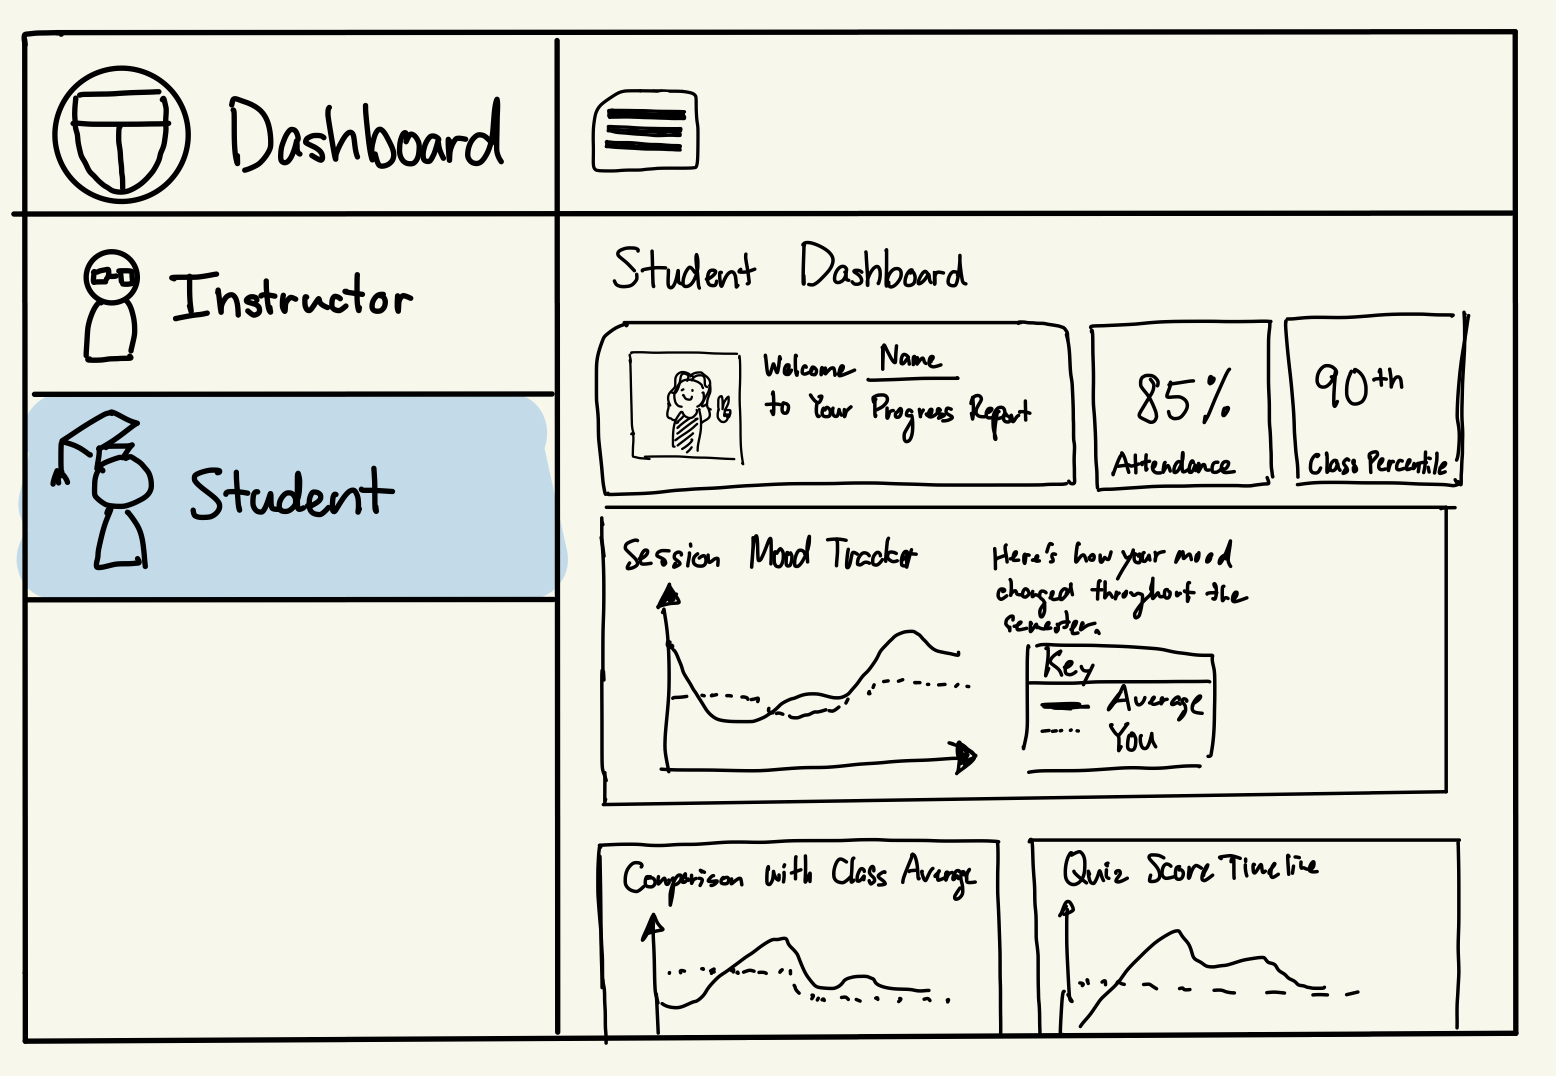 Dashboard
Instructor
Student
Student Dashboard
Welcome Name
to Your Progress Report
85%
Attendance
90th
Class Percentile
Session Mood Tracker
Here's how your mood
changed throughout the
semester.
Key
Average
You
Comparison with Class Average
Quiz Score Timeline